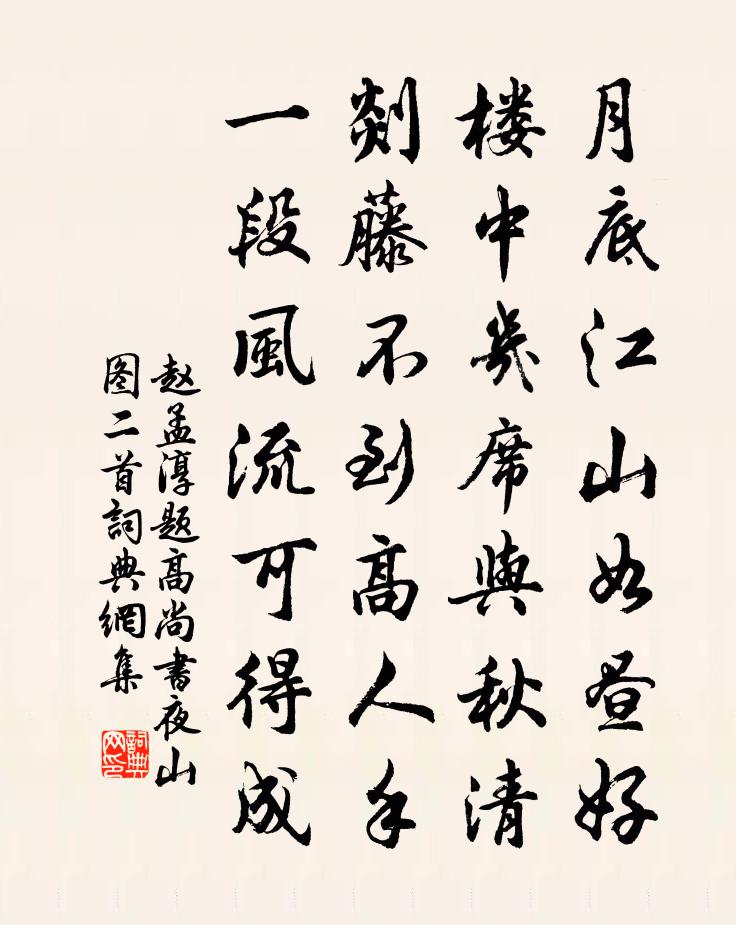 月底江山如昼好
楼中幾席與秋清
剡藤不到高人手
一段風流可得成
赵孟淳题高尚書夜山
图二首詞典網集
詞典网印